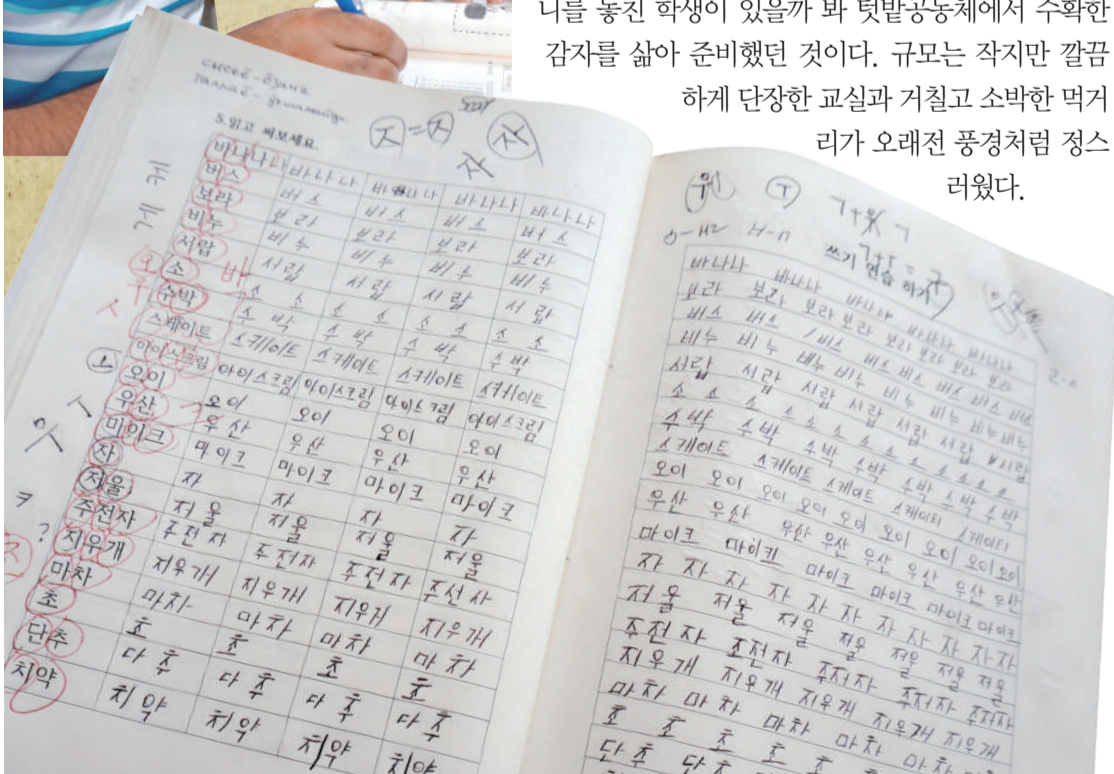 니를 놓친 학생이 있을까 봐 텃밭공동체에서 수확한
감자를 삶아 준비했던 것이다. 규모는 작지만 깔끔
하게 단장한 교실과 거칠고 소박한 먹거
리가 오래전 풍경처럼 정스
러웠다.
5. 읽고 써보세요
바나나 바나나 바나나 바나나 바나나
버스 버스 버스 버스 버스
보라 보라 보라 보라 보라
비누 비누 비누 비누 비누
서랍 서랍 서랍 서랍 서랍
소 소 소 소 소
수박 수박 수박 수박 수박
스케이트 스케이트 스케이트 스케이트 스케이트
아이스크림 아이스크림 아이스크림 아이스크림 아이스크림
오이 오이 오이 오이 오이
우산 우산 우산 우산 우산
마이크 마이크 마이크 마이크 마이크
자 자 자 자 자
저울 저울 저울 저울 저울
주전자 주전자 주전자 주전자
지우개 지우개 지우개 지우개 지우개
마차 마차 마차 마차 마차
초 초 초 초 초
단추 다추 다추 다추 다추
치약 치약 치약 치약 치약
쓰기 연습 하기
바나나 바나나 바나나 바나나 바나나
보라 보라 보라 보라 보라 보라 보라 보라
버스 버스 버스 버스 버스 버스 버스 버스
비누 비누 비누 비누 비누 비누 비누
서랍 서랍 서랍 서랍 서랍 서랍
소 소 소 소 소 소 소 소 소 소
수박 수박 수박 수박 수박 수박 수박
스케이트 스케이트 스케이트 스케이티 스케이티
오이 오이 오이 오이 오이 오이 오이 오이
우산 우산 우산 우산 우산 우산 우산 우산
마이크 마이크 마이크 마이크 마이크
자 자 자 자 자 자 자 자 자
저울 저울 저울 저울 저울 저울 저울
주전자 주전자 주저자 주저자 주저자
지우개 지우개 지우개 지우개 지우개
마차 마차 마차 마차
초 초 초 초 초
단추 단추